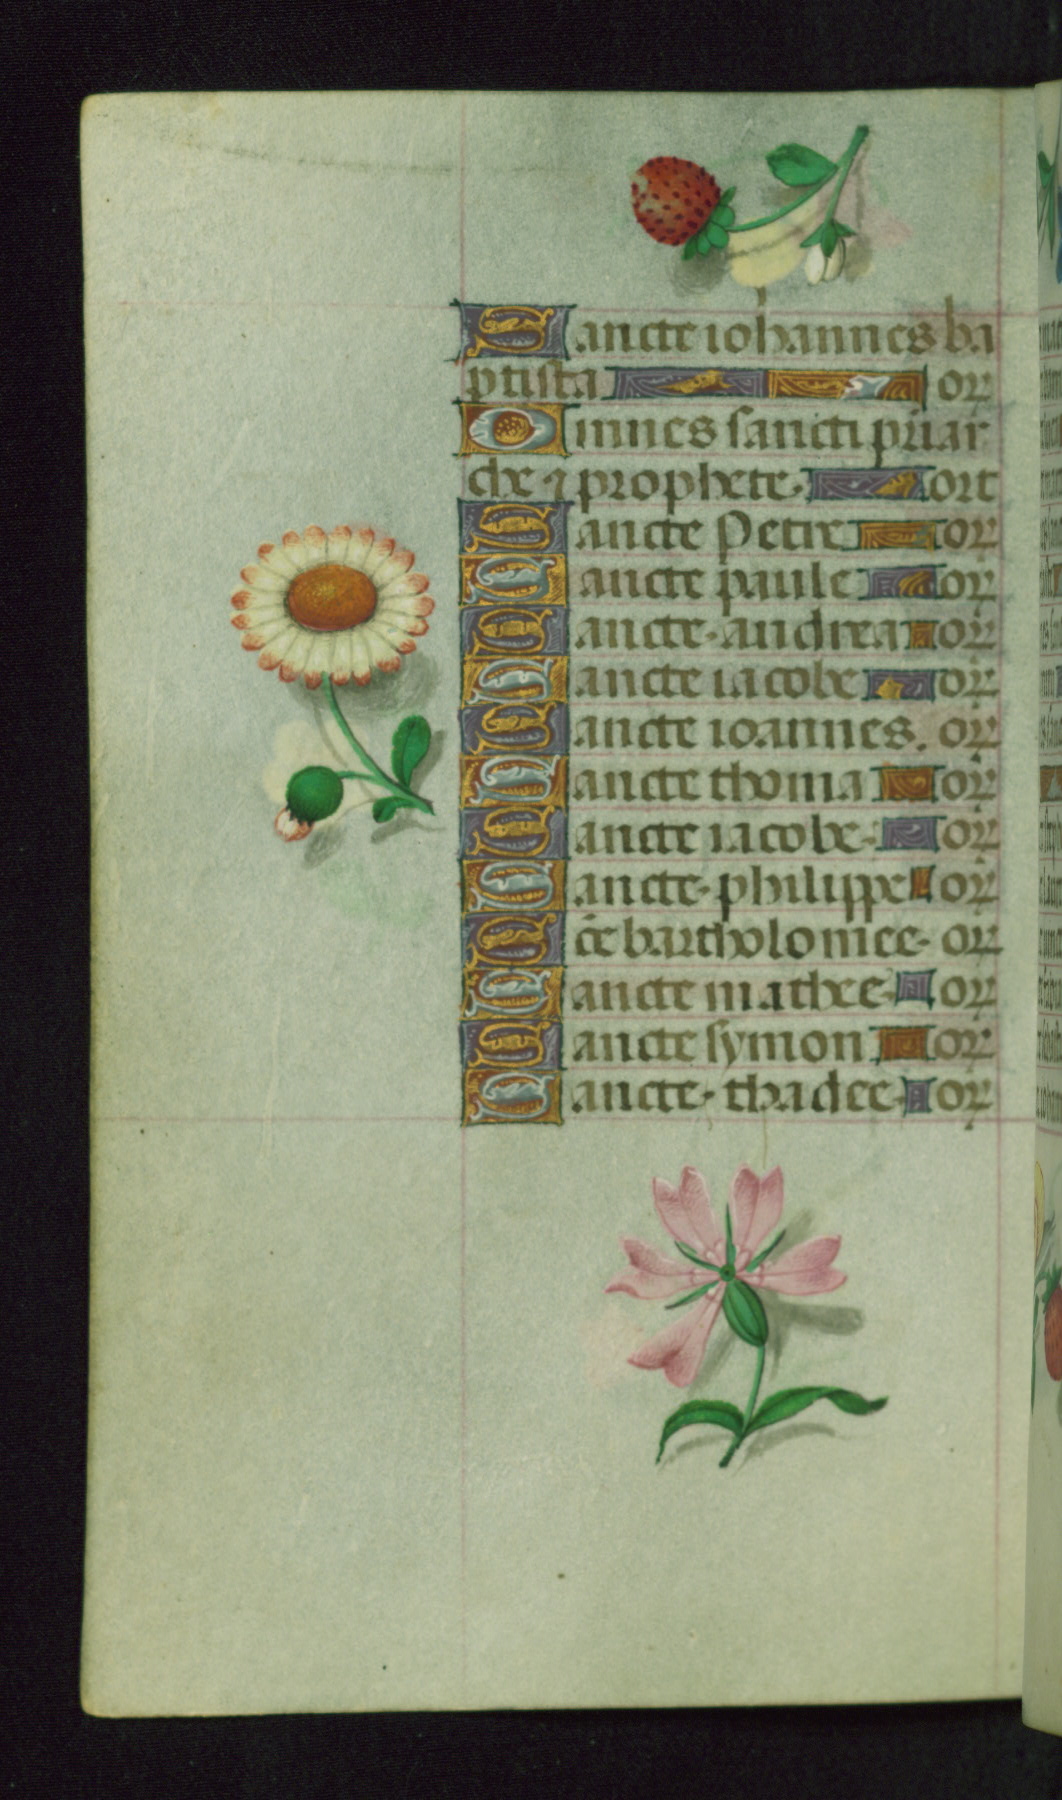 Sancte iohannes ba
ptista or
Omnes sancti pr̄iar
che ⁊ prophete. ort
Sancte Petre or
Sancte paule or
Sancte. andrea or
Sancte iacobe or
Sancte ioannes. or
Sancte thoma or
Sancte iacobe. or
Sancte. philippe or
Sc̄e bartholomee. or
Sancte mathee. or
Sancte symon or
Sancte. thadee. or